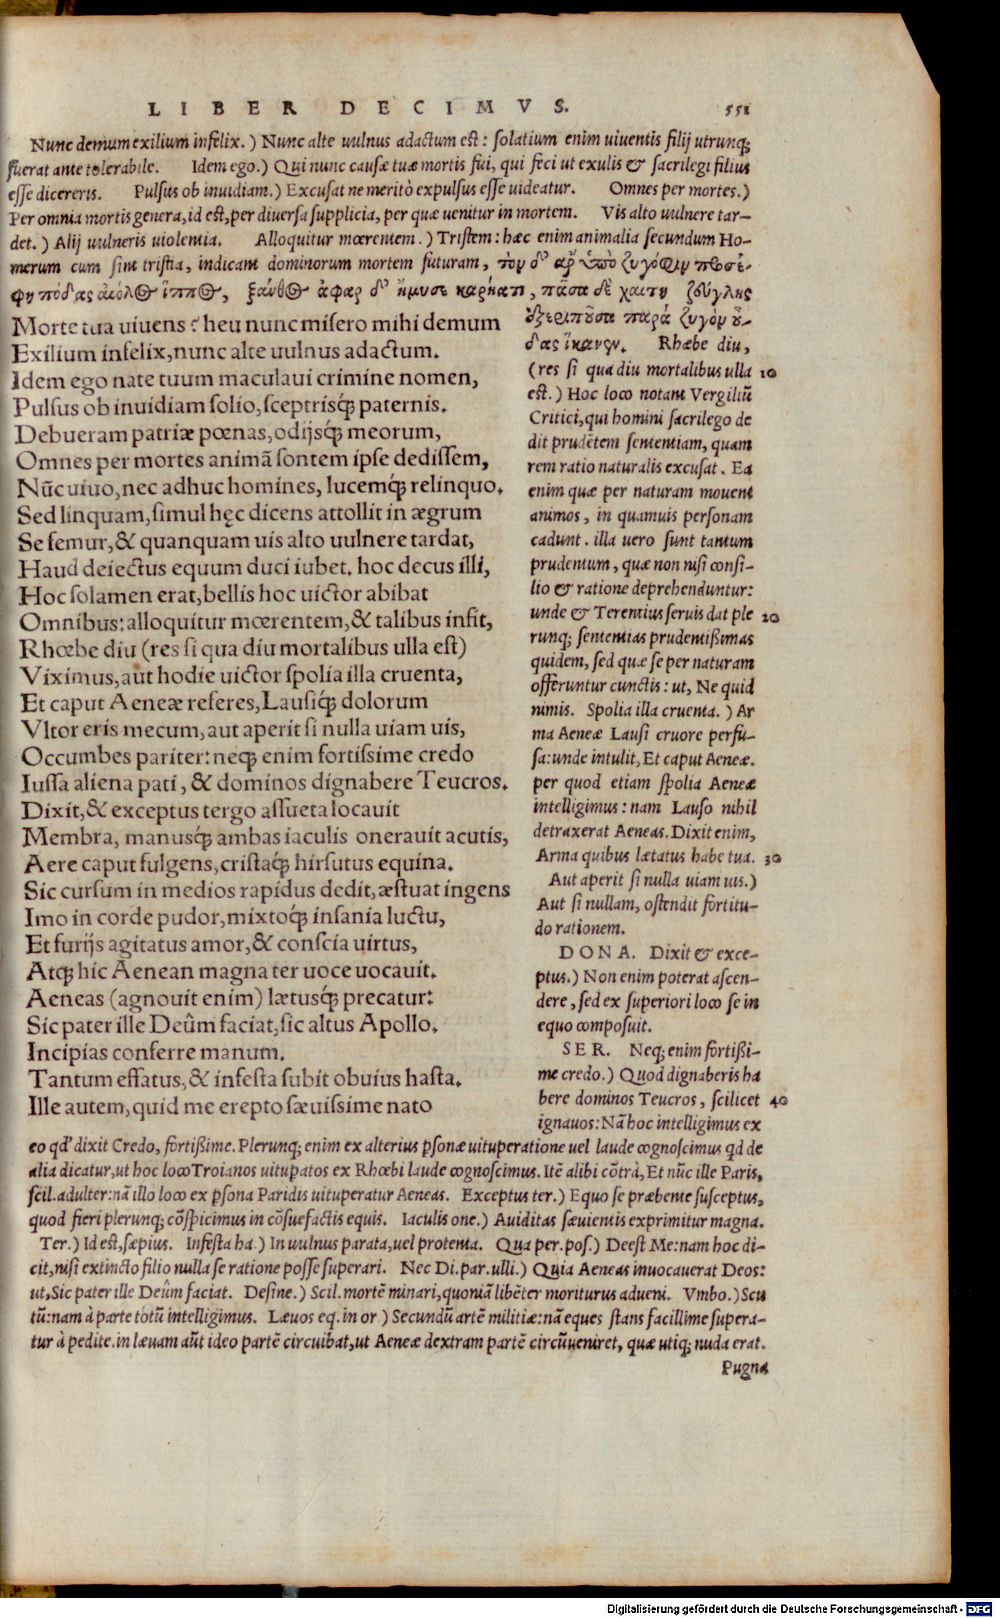 LIBER DECIMVS. 551
Nunc demum exilium infelix.) Nunc alte uulnus adactum est: solatium enim uiuentis filij utrunq;
fuerat ante tolerabile. Idem ego.) Qui nunc causæ tuæ mortis fui, qui feci ut exulis & sacrilegi filius
esse dicereris. Pulsus ob inuidiam.) Excusat ne meritò expulsus esse uideatur. Omnes per mortes.)
Per omnia mortis genera, id est, per diuersa supplicia, per quæ uenitur in mortem. Vis alto uulnere tar-
det.) Alij uulneris uiolentia. Alloquitur mœrentem.) Tristem: hæc enim animalia secundum Ho-
merum cum sint tristia, indicant dominorum mortem futuram, τὸν δ' ἀρ' ὑπὸ ζυγόφιν προσέ-
φη πόδας αἰόλος ἵππος, ξάνθος ἀφαρ δ' ἤμυσε καρήατι, πᾶσα δὲ χαίτη ζεύγλης
ἐξεριποῦσα παρὰ ζυγὸν οὖ-
δας ἵκανεν. Rhœbe diu,
(res si qua diu mortalibus ulla 10
est.) Hoc loco notant Vergiliũ
Critici, qui homini sacrilego de
dit prudẽtem sententiam, quam
rem ratio naturalis excusat. Ea
enim quæ per naturam mouent
animos, in quamuis personam
cadunt. illa uero sunt tantum
prudentum, quæ non nisi consi-
lio & ratione deprehenduntur:
unde & Terentius seruis dat ple 20
runq; sententias prudentißimas
quidem, sed quæ se per naturam
offeruntur cunctis: ut, Ne quid
nimis. Spolia illa cruenta.) Ar
ma Aeneæ Lausi cruore perfu-
sa: unde intulit, Et caput Aeneæ.
per quod etiam spolia Aeneæ
intelligimus: nam Lauso nihil
detraxerat Aeneas. Dixit enim,
Arma quibus lætatus habe tua. 30
Aut aperit si nulla uiam uis.)
Aut si nullam, ostendit fortitu-
do rationem.
DONA. Dixit & exce-
ptus.) Non enim poterat ascen-
dere, sed ex superiori loco se in
equo composuit.
SER. Neq; enim fortißi-
me credo.) Quod dignaberis ha
bere dominos Teucros, scilicet 40
ignauos: Nã hoc intelligimus ex
Morte tua uiuens? heu nunc misero mihi demum
Exilium infelix, nunc alte uulnus adactum.
Idem ego nate tuum maculaui crimine nomen,
Pulsus ob inuidiam solio, sceptrisq; paternis.
Debueram patriæ pœnas, odijsq; meorum,
Omnes per mortes animã sontem ipse dedissem,
Nũc uiuo, nec adhuc homines, lucemq; relinquo.
Sed linquam, simul hęc dicens attollit in ægrum
Se femur, & quanquam uis alto uulnere tardat,
Haud deiectus equum duci iubet. hoc decus illi,
Hoc solamen erat, bellis hoc uictor abibat
Omnibus: alloquitur mœrentem, & talibus infit,
Rhœbe diu (res si qua diu mortalibus ulla est)
Viximus, aut hodie uictor spolia illa cruenta,
Et caput Aeneæ referes, Lausiq; dolorum
Vltor eris mecum, aut aperit si nulla uiam uis,
Occumbes pariter: neq; enim fortissime credo
Iussa aliena pati, & dominos dignabere Teucros.
Dixit, & exceptus tergo assueta locauit
Membra, manusq; ambas iaculis onerauit acutis,
Aere caput fulgens, cristaq; hirsutus equina.
Sic cursum in medios rapidus dedit, æstuat ingens
Imo in corde pudor, mixtoq; insania luctu,
Et furijs agitatus amor, & conscia uirtus,
Atq; hic Aenean magna ter uoce uocauit.
Aeneas (agnouit enim) lætusq; precatur:
Sic pater ille Deûm faciat, sic altus Apollo.
Incipias conferre manum.
Tantum effatus, & infesta subit obuius hasta.
Ille autem, quid me erepto sæuissime nato
eo qđ dixit Credo, fortißime. Plerunq; enim ex alterius psonæ uituperatione uel laude cognoscimus qd de
alia dicatur, ut hoc loco Troianos uitupatos ex Rhœbi laude cognoscimus. Itẽ alibi cõtrà, Et nũc ille Paris,
scil. adulter: nã illo loco ex psona Paridis uituperatur Aeneas. Exceptus ter.) Equo se præbente susceptus,
quod fieri plerunq; cõspicimus in cõsuefactis equis. Iaculis one.) Auiditas sæuientis exprimitur magna.
Ter.) Id est, sæpius. Infesta ha.) In uulnus parata, uel protenta. Qua per. pos.) Deest Me: nam hoc di-
cit, nisi extincto filio nulla se ratione posse superari. Nec Di. par. ulli.) Quia Aeneas inuocauerat Deos:
ut, Sic pater ille Deûm faciat. Desine.) Scil. mortẽ minari, quoniã libẽter moriturus adueni. Vmbo.) Scu
tũ: nam à parte totũ intelligimus. Læuos eq. in or.) Secundũ artẽ militiæ: nã eques stans facillime supera-
tur à pedite. in læuam aũt ideo partẽ circuibat, ut Aeneæ dextram partẽ circũueniret, quæ utiq; nuda erat.
Pugna
Digitalisierung gefördert durch die Deutsche Forschungsgemeinschaft - DFG